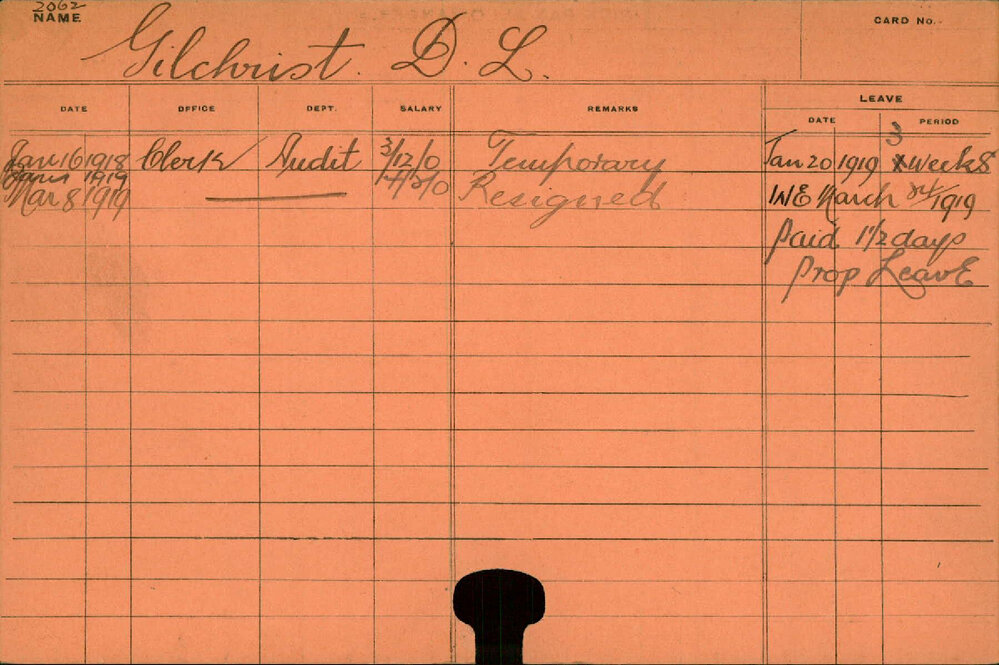 2062
NAME
Gilchrist. D. L.
CARD No.
DATE OFFICE DEPT. SALARY REMARKS LEAVE
DATE PERIOD
Jan 16 1918 Clerk Audit 3/12/0 Temporary Jan 20 1919 3 weeks
Jan 1 1919 4/2/0
Mar 8 1919 Resigned W/E March 1919
Paid 1 1/2 days
Prop Leave